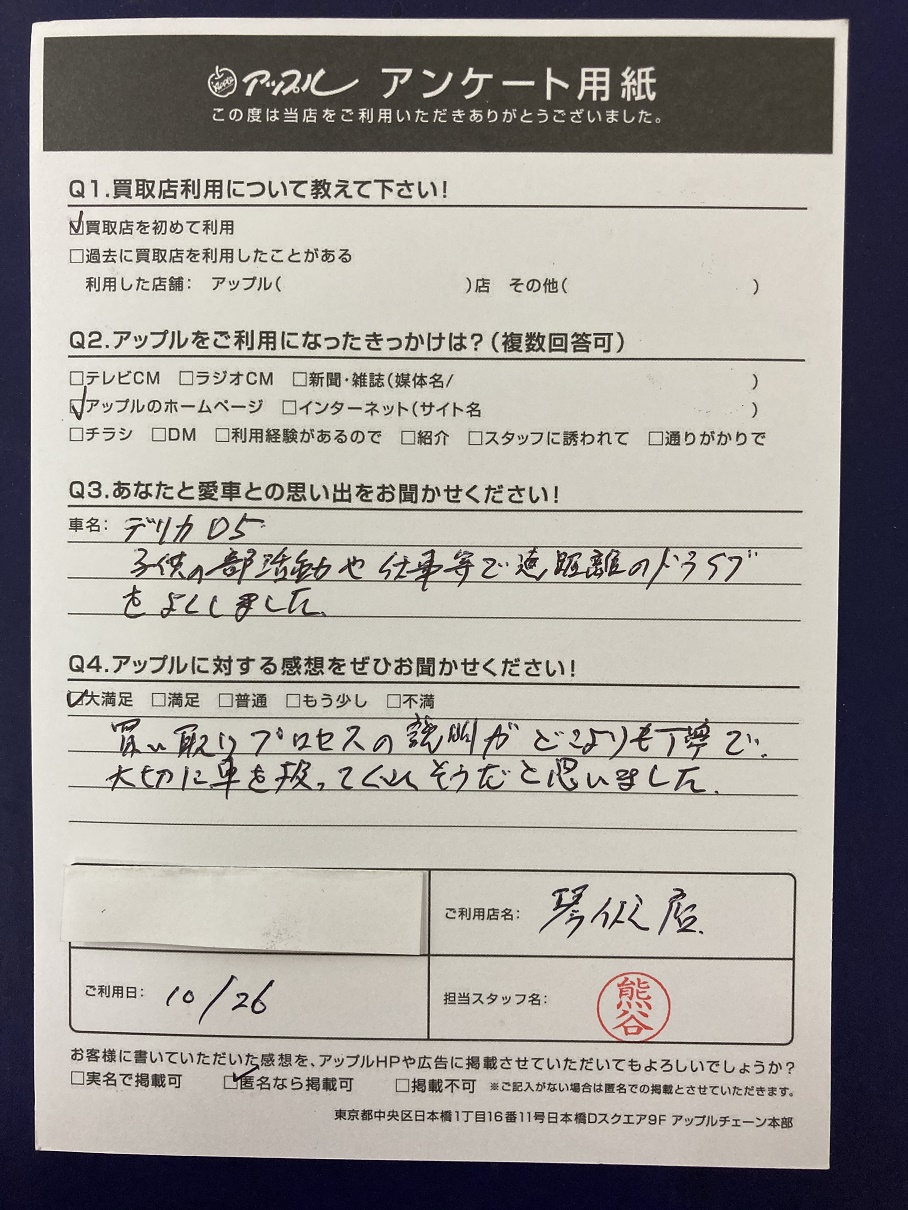 アップル アンケート用紙
この度は当店をご利用いただきありがとうございました。
Q1.買取店利用について教えて下さい!
☑買取店を初めて利用
□過去に買取店を利用したことがある
利用した店舗: アップル( )店 その他( )
Q2.アップルをご利用になったきっかけは?(複数回答可)
□テレビCM □ラジオCM □新聞・雑誌(媒体名/ )
☑アップルのホームページ □インターネット(サイト名 )
□チラシ □DM □利用経験があるので □紹介 □スタッフに誘われて □通りがかりで
Q3.あなたと愛車との思い出をお聞かせください!
車名: デリカD5
子供の部活動や仕事等で遠距離のドライブ
をよくしました。
Q4.アップルに対する感想をぜひお聞かせください!
☑大満足 □満足 □普通 □もう少し □不満
買い取りプロセスの説明がどこよりも丁寧で、
大切に車を扱ってくれそうだと思いました。
ご利用店名: 琴似店
ご利用日: 10/26
担当スタッフ名: 熊谷
お客様に書いていただいた感想を、アップルHPや広告に掲載させていただいてもよろしいでしょうか?
□実名で掲載可 ☑匿名なら掲載可 □掲載不可 ※ご記入がない場合は匿名での掲載とさせていただきます。
東京都中央区日本橋1丁目16番11号日本橋Dスクエア9F アップルチェーン本部